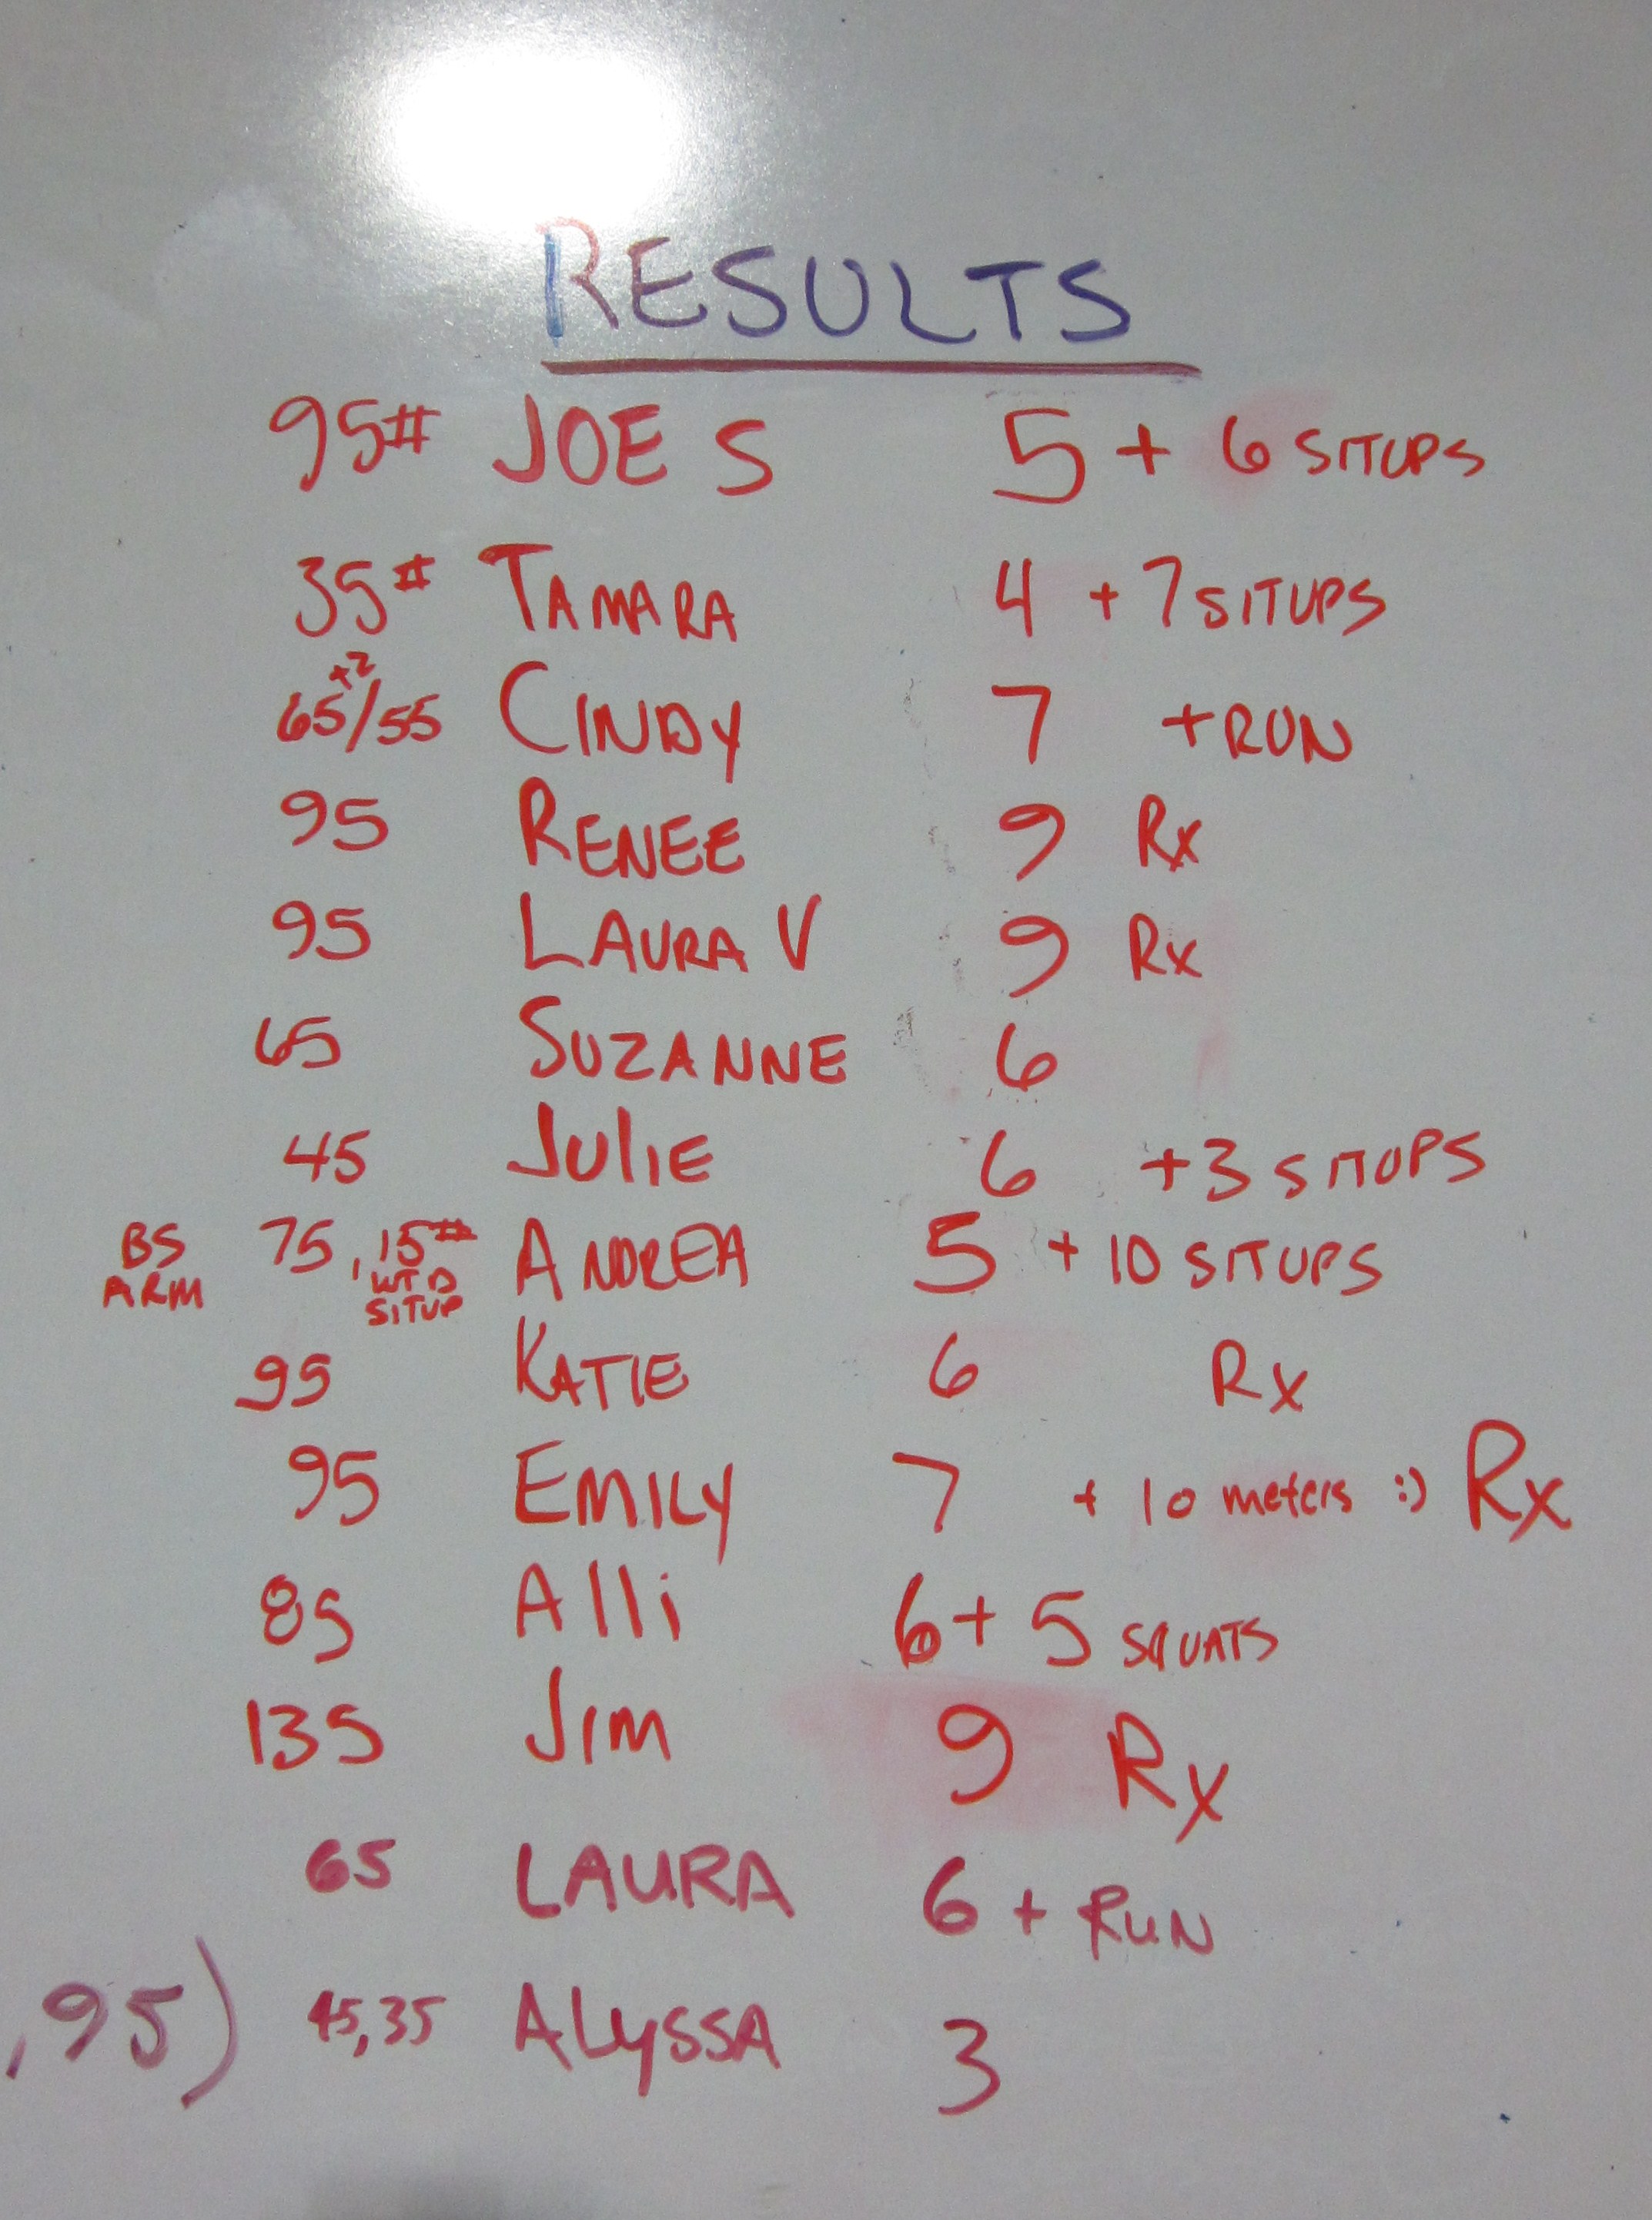 RESULTS
95# JOE S 5 + 6 SITUPS
35# TAMARA 4 + 7 SITUPS
+2
65/55 CINDY 7 + RUN
95 RENEE 9 Rx
95 LAURA V 9 Rx
65 SUZANNE 6
45 JULIE 6 +3 SITUPS
BS ARM 75, 15# WTD SITUP ANDREA 5 + 10 SITUPS
95 KATIE 6 Rx
95 EMILY 7 + 10 meters :) Rx
85 Alli 6 + 5 SQUATS
135 JIM 9 Rx
65 LAURA 6 + RUN
,95) 45,35 ALYSSA 3